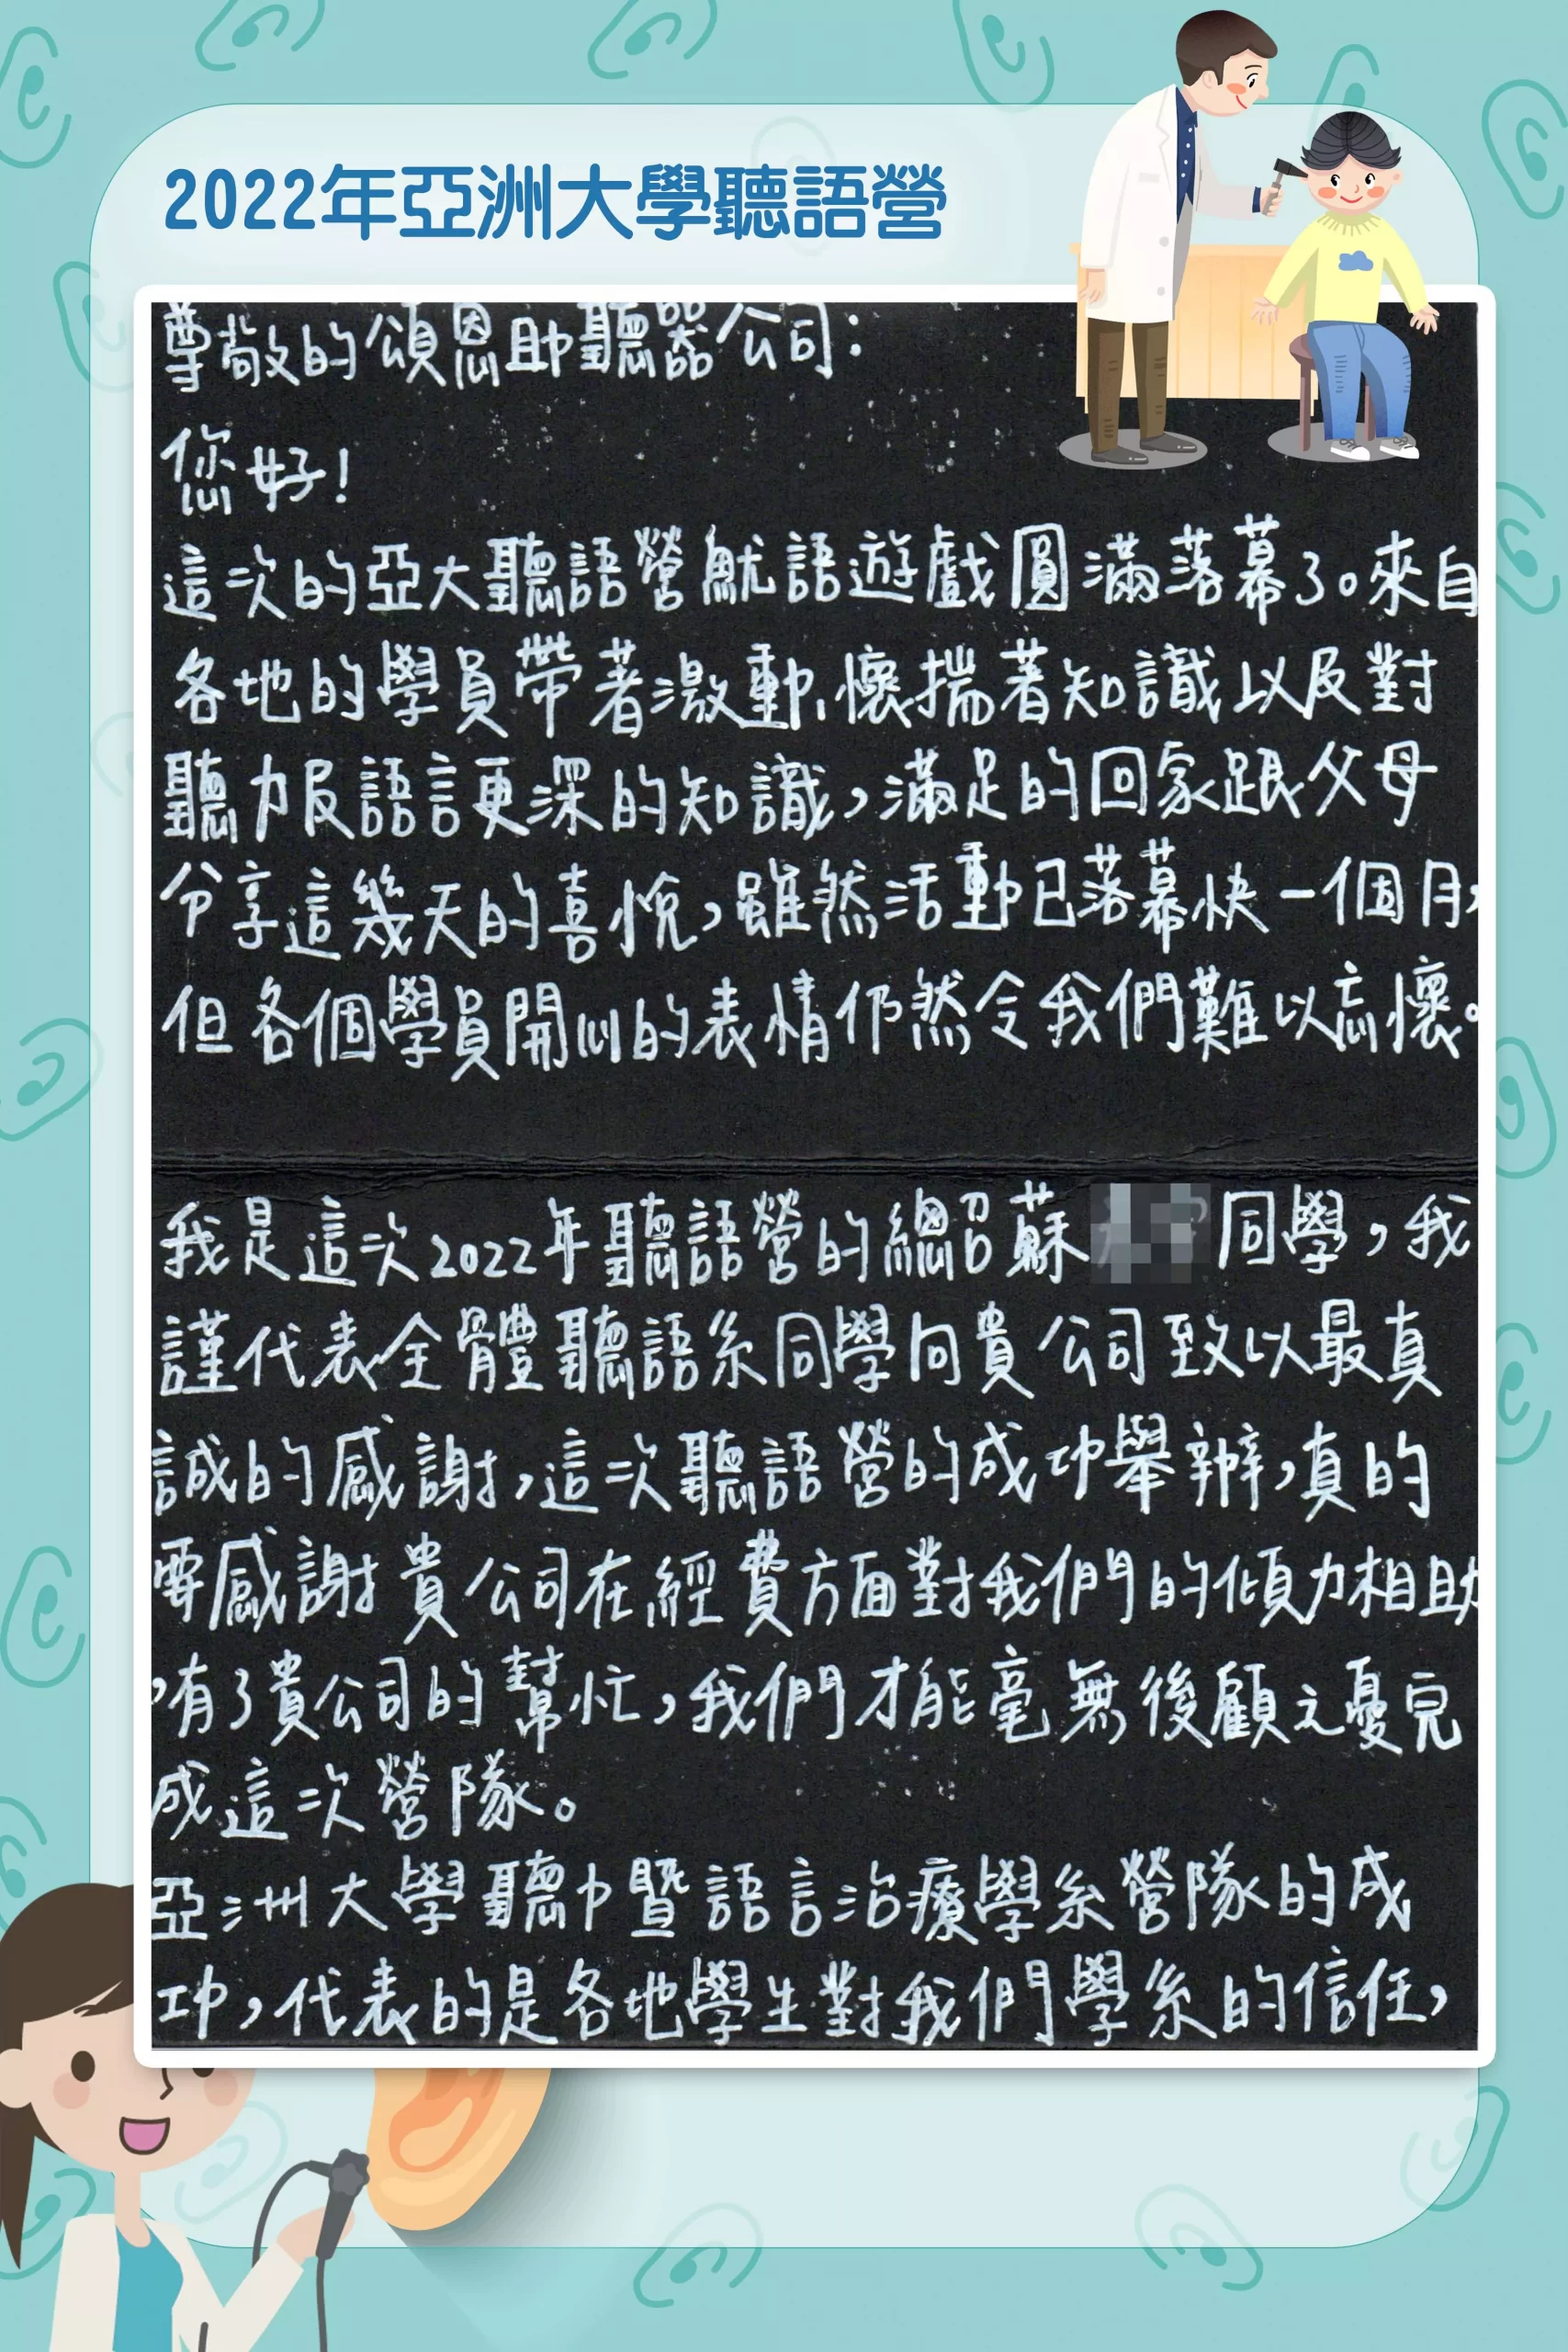 2022年亞洲大學聽語營
尊敬的頌恩助聽器公司：
您好！
這次的亞大聽語營魷語遊戲圓滿落幕了。來自
各地的學員帶著激動、懷揣著知識以及對
聽力及語言更深的知識，滿足的回家跟父母
分享這幾天的喜悅，雖然活動已落幕快一個月，
但各個學員開心的表情仍然令我們難以忘懷。
我是這次2022年聽語營的總召蘇同學，我
謹代表全體聽語系同學向貴公司致以最真
誠的感謝，這次聽語營的成功舉辦，真的
要感謝貴公司在經費方面對我們的傾力相助
，有了貴公司的幫忙，我們才能毫無後顧之憂完
成這次營隊。
亞洲大學聽力暨語言治療學系營隊的成
功，代表的是各地學生對我們學系的信任，